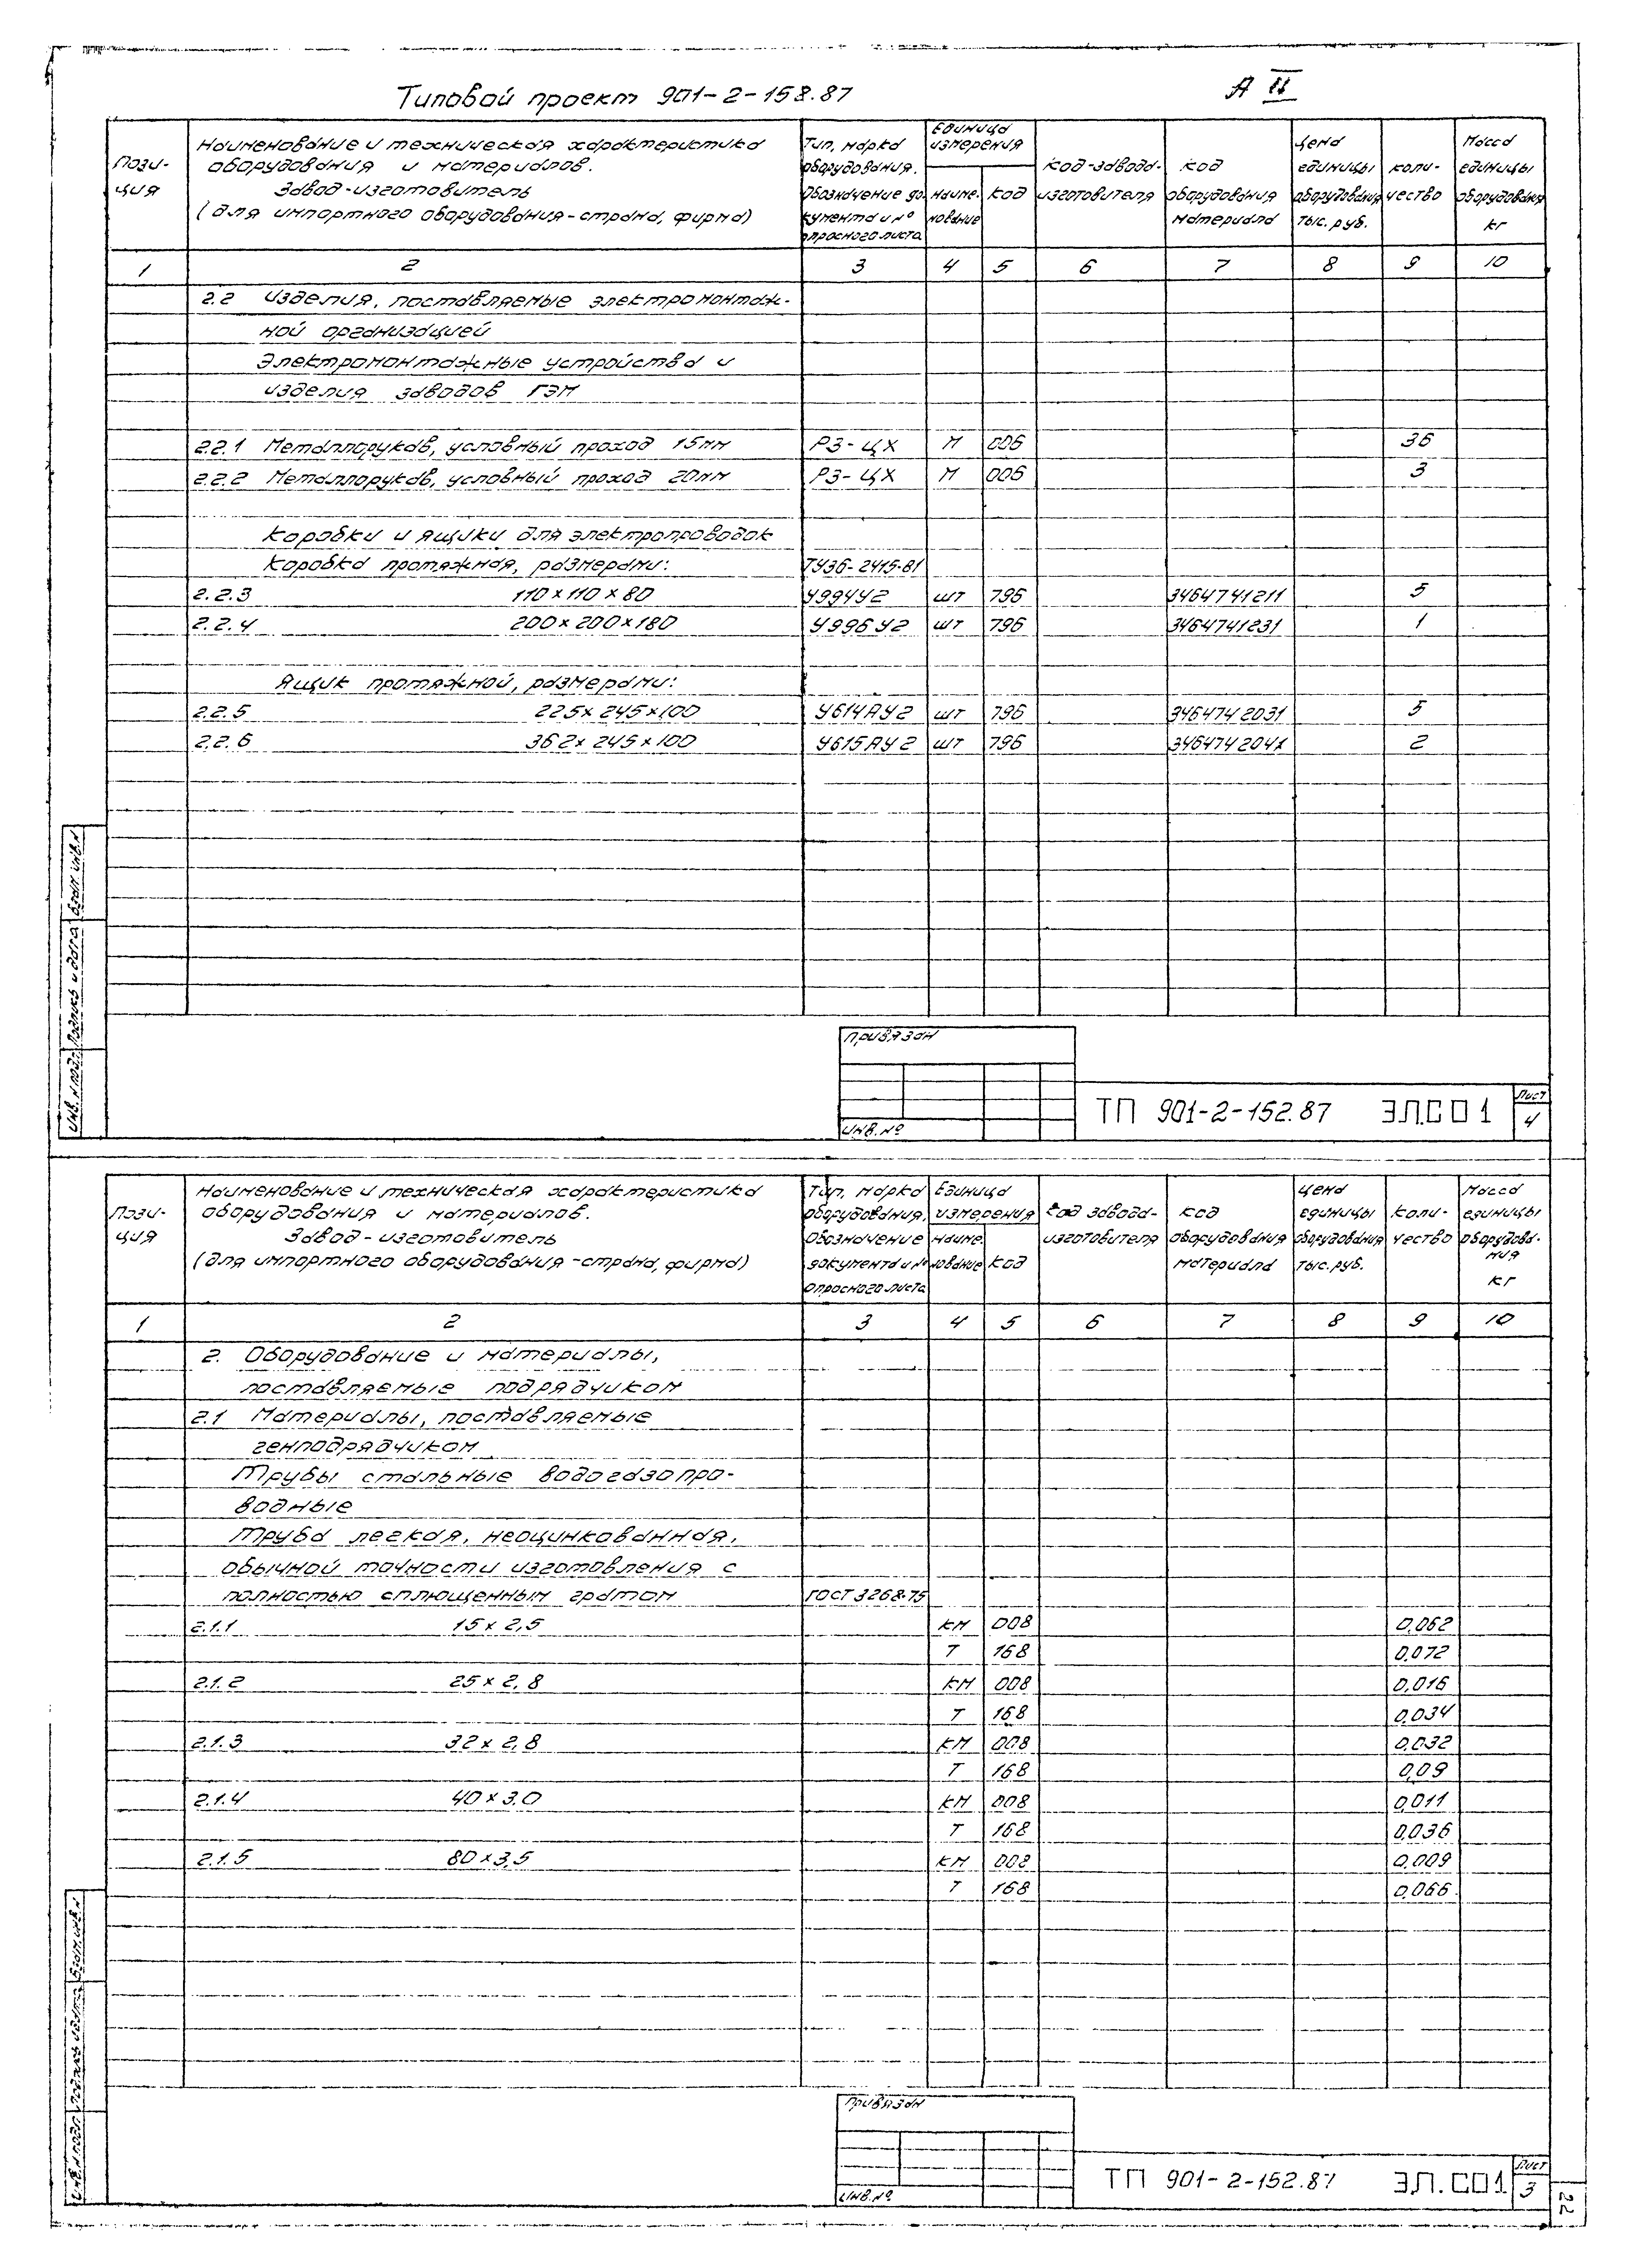 Типовой проект 901-2-158.87
А II
Пози-
ция
Наименование и техническая характеристика
оборудования и материалов.
Завод-изготовитель
(для импортного оборудования-страна, фирма)
Тип, марка
оборудования.
Обозначение до-
кумента и №
опросного листа
Единица
измерения
наиме-
нование
код
код-завода-
изготовителя
код
оборудования
материала
цена
единицы
оборудования
тыс. руб.
коли-
чество
Масса
единицы
оборудования
кг
1 2 3 4 5 6 7 8 9 10
2.2 Изделия, поставляемые электромонтаж-
ной организацией
Электромонтажные устройства и
изделия заводов ГЭМ
2.2.1 Металлорукав, условный проход 15мм РЗ-ЦХ М 006 36
2.2.2 Металлорукав, условный проход 20мм РЗ-ЦХ М 006 3
Коробки и ящики для электропроводок
Коробка протяжная, размерами: ТУ36-2415-81
2.2.3 110×110×80 У994У2 шт 796 3464741211 5
2.2.4 200×200×180 У996У2 шт 796 3464741231 1
Ящик протяжной, размерами:
2.2.5 225×245×100 У614АУ2 шт 796 3464742031 5
2.2.6 362×245×100 У615АУ2 шт 796 346474204 2
Взам. инв.№
Подпись и дата
Инв.№ подл.
Привязан
Инв.№
ТП 901-2-152.87 ЭЛ.СО1
Лист
4
Пози-
ция
Наименование и техническая характеристика
оборудования и материалов.
Завод-изготовитель
(для импортного оборудования-страна, фирма)
Тип, марка
оборудования.
Обозначение
документа и №
опросного листа
Единица
измерения
наиме
нование
код
код завода-
изготовителя
код
оборудования
материала
цена
единицы
оборудования
тыс. руб.
коли-
чество
Масса
единицы
оборудова-
ния
кг
1 2 3 4 5 6 7 8 9 10
2. Оборудование и материалы,
поставляемые подрядчиком
2.1 Материалы, поставляемые
генподрядчиком
Трубы стальные водогазопро-
водные
Труба легкая, неоцинкованная,
обычной точности изготовления с
полностью сплющенным гратом ГОСТ 3268-75
2.1.1 15×2,5 км 008 0,062
Т 168 0,072
2.1.2 25×2,8 км 008 0,016
Т 168 0,034
2.1.3 32×2,8 км 008 0,032
Т 168 0,09
2.1.4 40×3.0 км 008 0,011
Т 168 0,036
2.1.5 80×3,5 км 008 0,009
Т 168 0,066
Взам.инв.№
Подпись и дата
Инв.№ подл
Привязан
Инв.№
ТП 901-2-152.87 ЭЛ.СО1
Лист
3
22